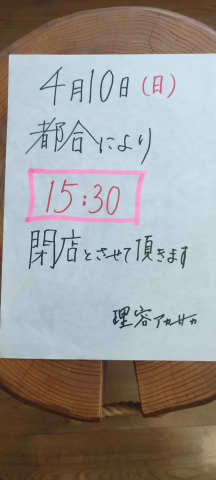 4月10日(日)
都合により
15:30
閉店とさせて頂きます
理容アカサカ